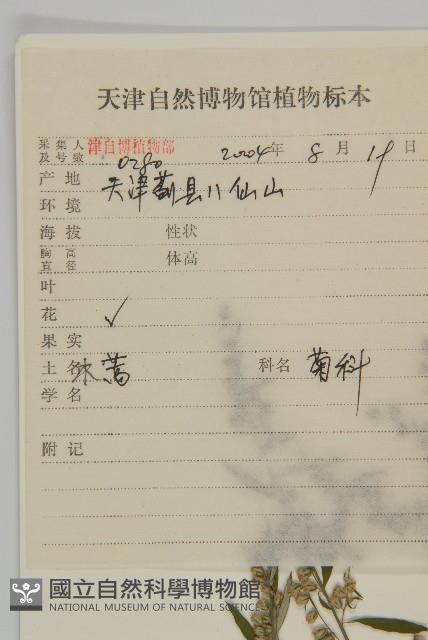 天津自然博物馆植物标本
采集人及号数 津自博植物部 0280 2004年 8月 19日
产地 天津蓟县八仙山
环境
海拔 性状
胸高直径 体高
叶
花 ✓
果实
土名 蒿 科名 菊科
学名
附记
國立自然科學博物館
NATIONAL MUSEUM OF NATURAL SCIENCE